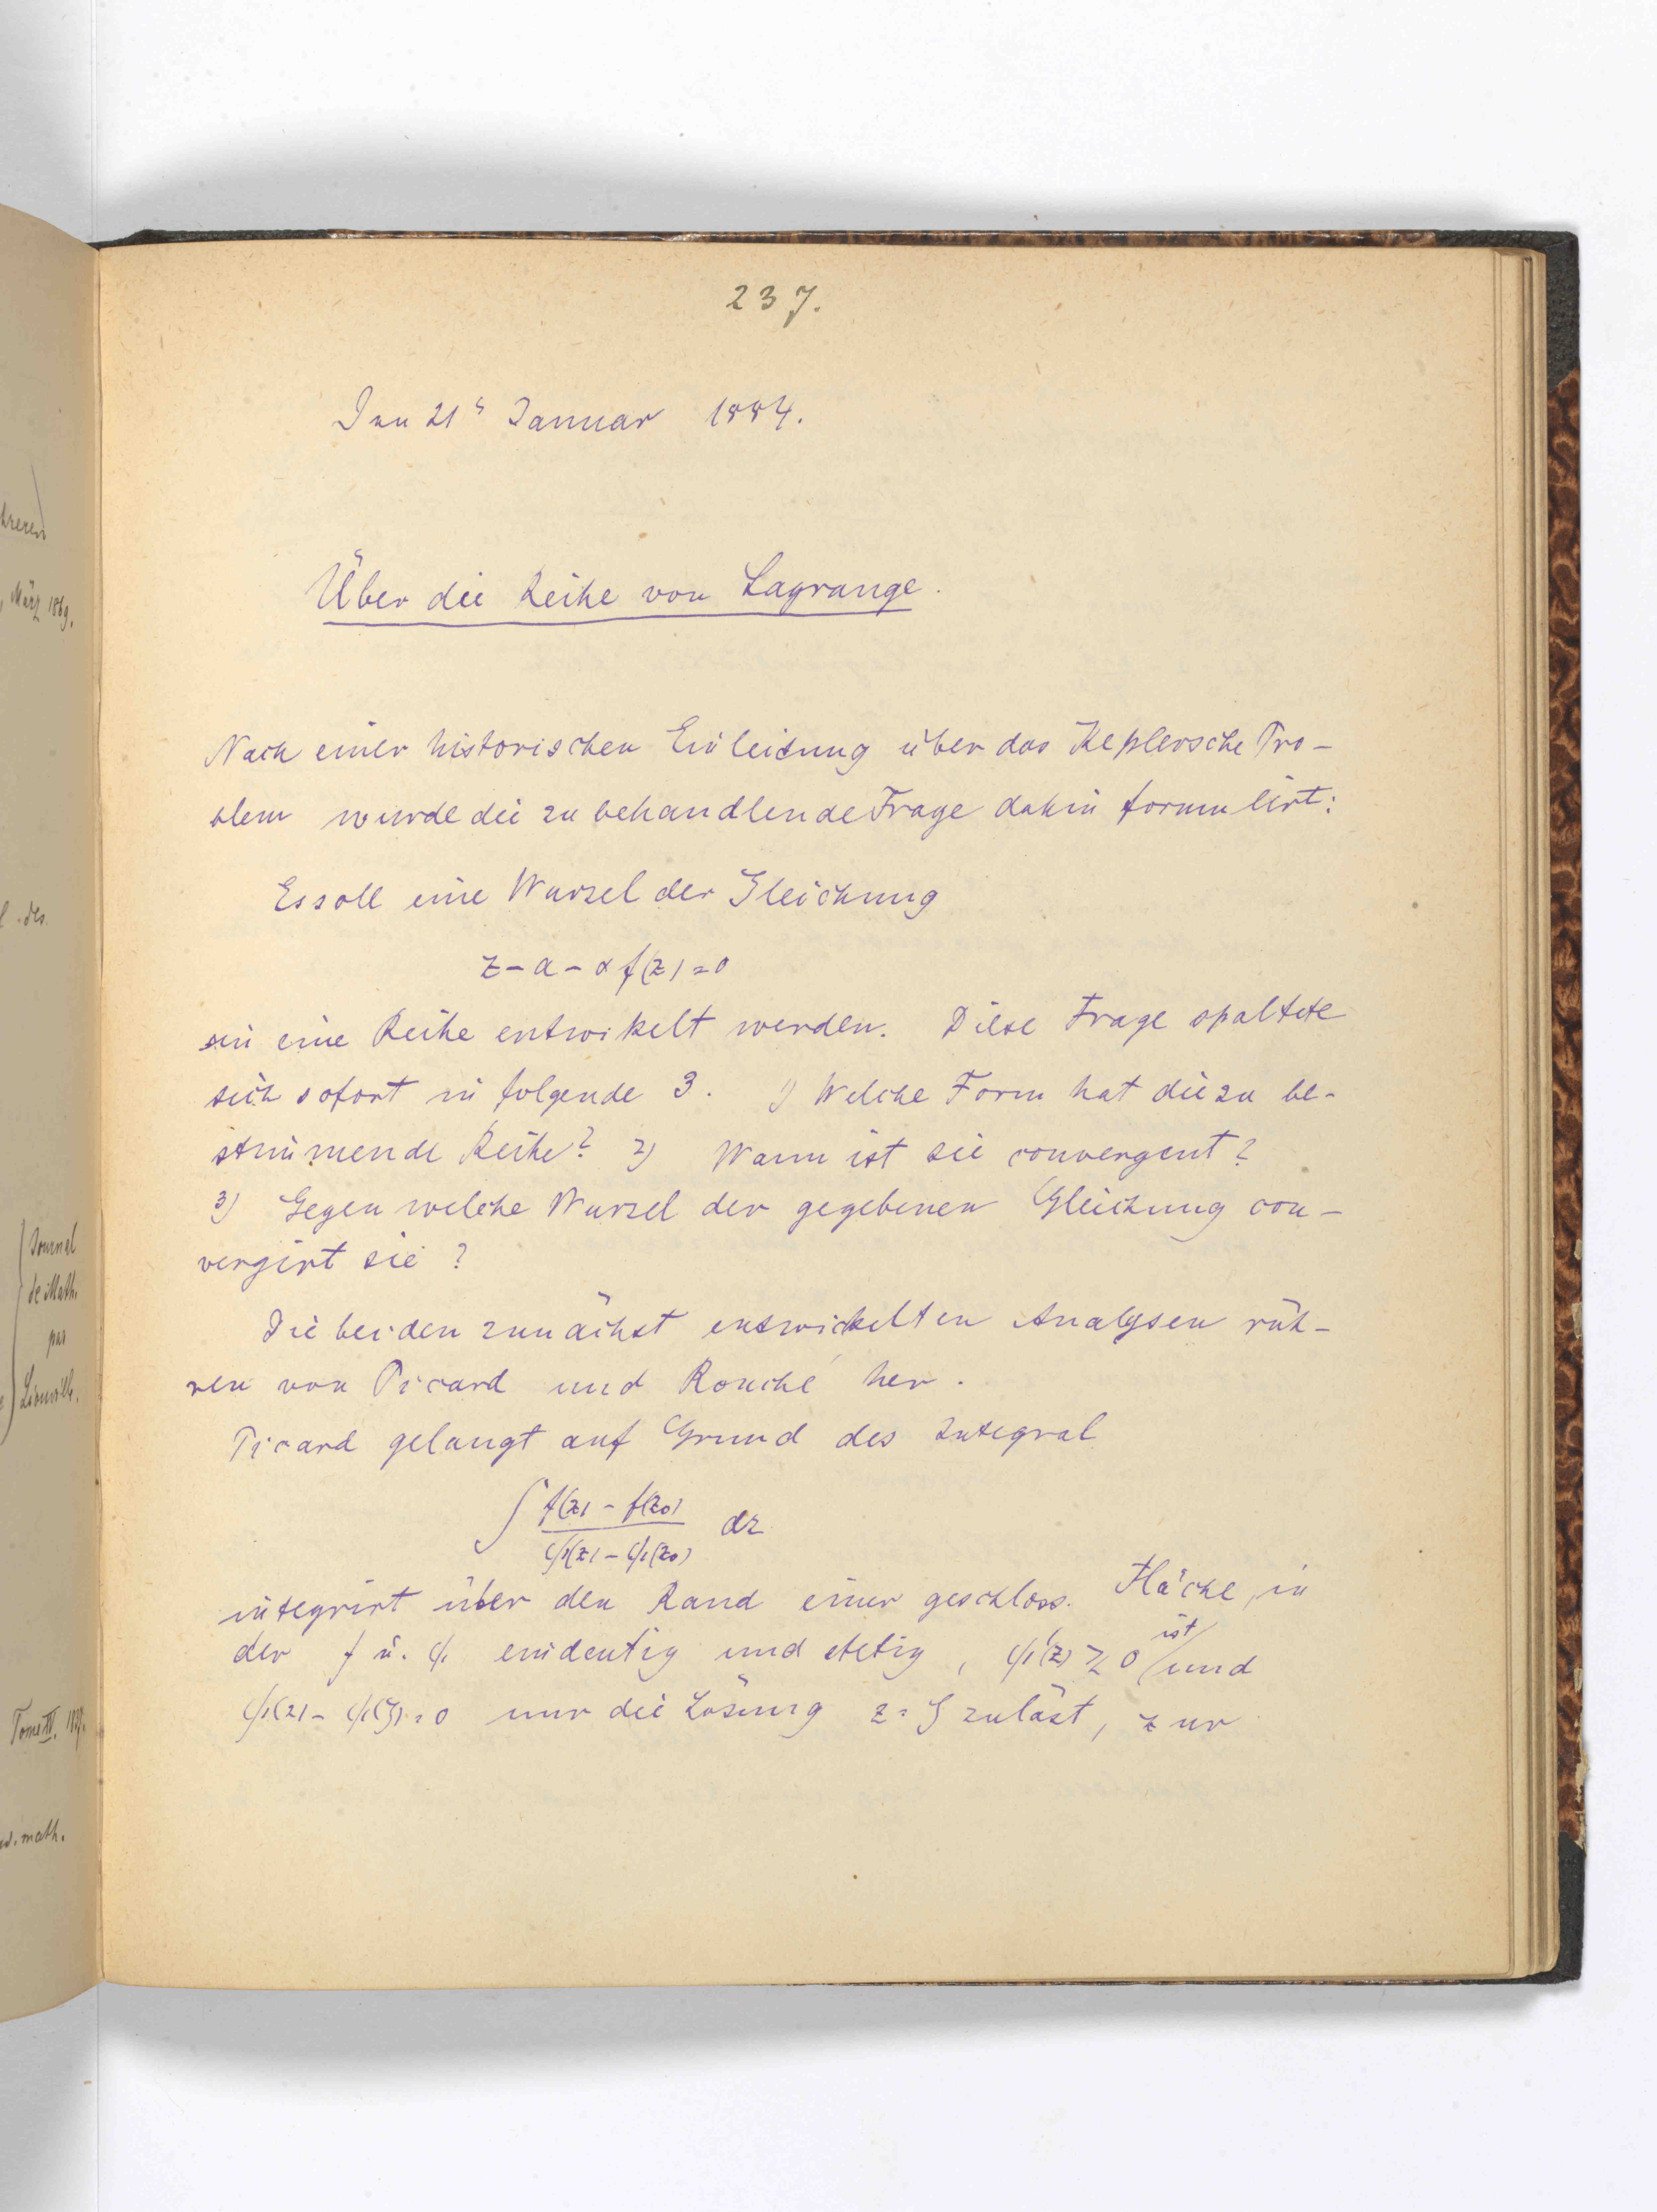 237.
Den 21t Januar 1884.
Über die Reihe von Lagrange.
Nach einer historischen Einleitung über das Keplersche Pro-
blem wurde die zu behandlende Frage dahin formulirt:
Es soll eine Wurzel der Gleichung
z - a - α f(z) = 0
in eine Reihe entwikelt werden. Diese Frage spaltete
sich sofort in folgende 3. 1) Welche Form hat die zu be-
stimmende Reihe? 2) Wann ist sie convergent?
3) Gegen welche Wurzel der gegebenen Gleichung con-
vergirt sie?
Die beiden zunächst entwickelten Analysen rüh-
ren von Picard und Rouché her.
Picard gelangt auf Grund des Integral
∫ (f(z) - f(z₀))/(φ(z) - φ(z₀)) dz
integrirt über den Rand einer geschloss. Fläche, in
der f u. φ eindeutig und stetig, φ'(z) ≷ 0 ist und
φ(z) - φ(ζ) = 0 nur die Lösung z = ζ zuläst, zur
März 1869.
l. des
Journal
de Math.
par
Liouville.
Tome IV.
math.